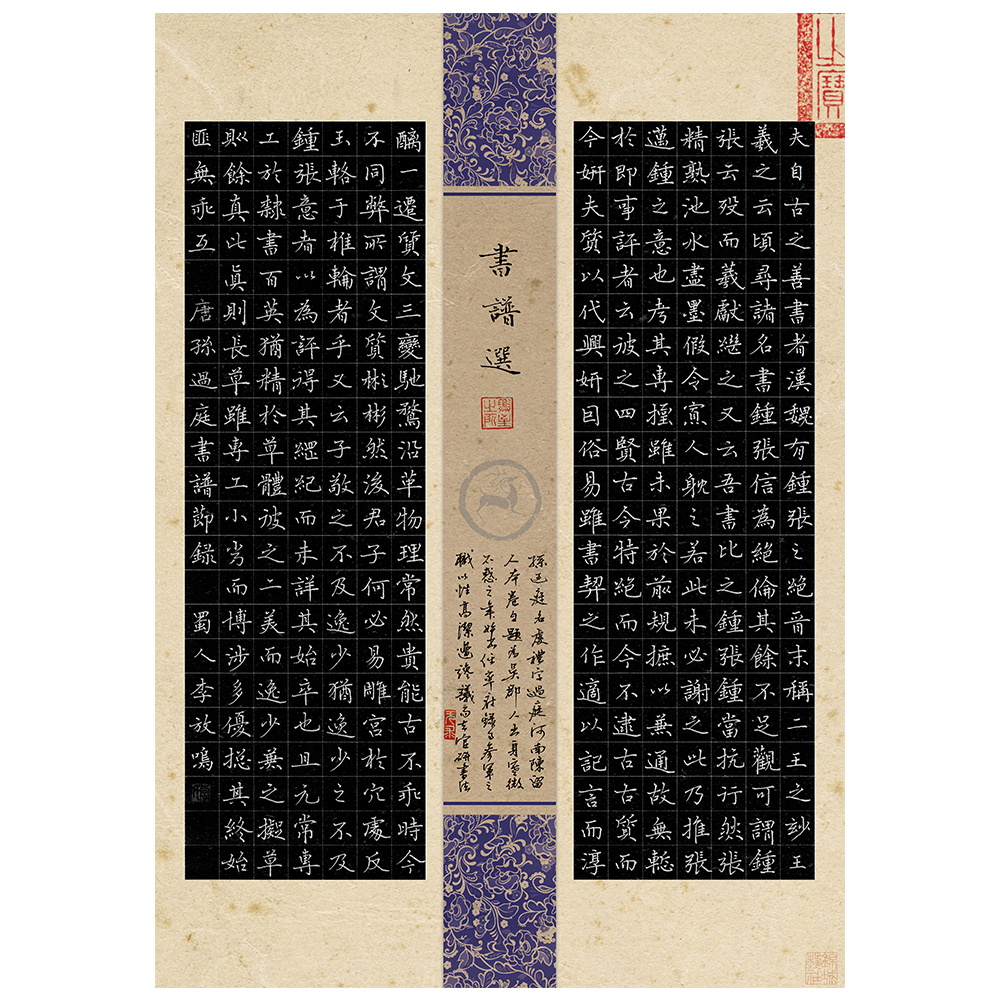 之寶
夫自古之善書者漢魏有鍾張之絕晉末稱二王之妙王
羲之云頃尋諸名書鍾張信為絕倫其餘不足觀可謂鍾
張云歿而羲獻繼之又云吾書比之鍾張鍾當抗行然張
精熟池水盡墨假令寡人耽之若此未必謝之此乃推張
邁鍾之意也考其專擅雖未果於前規摭以兼通故無慙
於即事評者云彼之四賢古今特絕而今不逮古古質而
今妍夫質以代興妍因俗易雖書契之作適以記言而淳
書譜選
孫過庭名虔禮字過庭河南陳留
人本卷自題為吳郡人出身寒微
不惑之年始出任率府錄事參軍之
職以性高潔遭讒議而去官研書法
醨一遷質文三變馳騖沿革物理常然貴能古不乖時今
不同弊所謂文質彬彬然後君子何必易雕宮於穴處反
玉輅于椎輪者乎又云子敬之不及逸少猶逸少之不及
鍾張意者以為評得其綱紀而未詳其始卒也且元常專
工於隸書百英猶精於草體彼之二美而逸少兼之擬草
則餘真比真則長草雖專工小劣而博涉多優揔其終始
匪無乖互 唐孫過庭書譜節錄 蜀人李放鳴